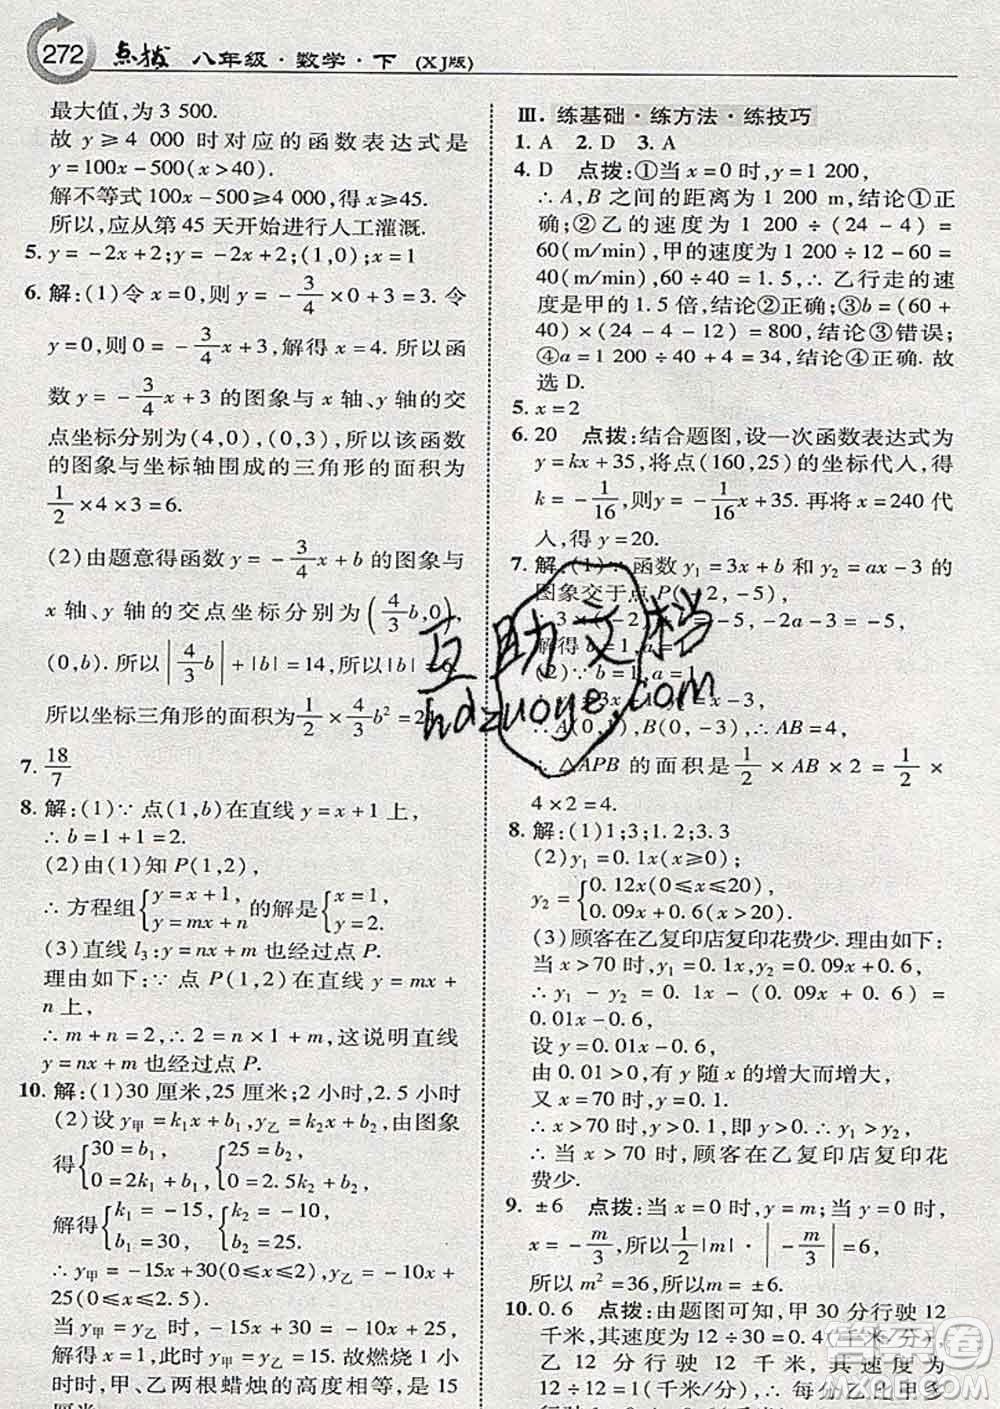 272 点拨 八年级·数学·下 (XJ版)
最大值,为 3 500.
故 y ≥ 4 000 时对应的函数表达式是
y=100x-500(x>40).
解不等式100x-500≥4 000,得x≥45.
所以,应从第 45 天开始进行人工灌溉.
5. y=-2x+2;y=-2x+2;(1,0);x=1
6. 解:(1)令 x=0,则 y=-3/4×0+3=3. 令
y=0,则 0=-3/4x+3,解得 x=4. 所以函
数 y=-3/4x+3 的图象与 x 轴、y 轴的交
点坐标分别为(4,0),(0,3),所以该函数
的图象与坐标轴围成的三角形的面积为
1/2×4×3=6.
(2)由题意得函数 y=-3/4x+b 的图象与
x 轴、y 轴的交点坐标分别为(4/3b,0),
(0,b). 所以|4/3b|+|b|=14,所以|b|=6.
所以坐标三角形的面积为1/2×4/3b²=2
7. 18/7
8. 解:(1)∵点(1,b)在直线 y=x+1 上,
∴b=1+1=2.
(2)由(1)知 P(1,2),
∴方程组{y=x+1, y=mx+n 的解是{x=1, y=2.
(3)直线 l₃:y=nx+m 也经过点 P.
理由如下:∵点 P(1,2)在直线 y=mx+
n 上,
∴m+n=2,∴2=n×1+m,这说明直线
y=nx+m 也经过点 P.
10. 解:(1)30 厘米,25 厘米;2 小时,2.5 小时
(2)设 y甲=k₁x+b₁,y乙=k₂x+b₂,由图象
得{30=b₁, 0=2k₁+b₁, {25=b₂, 0=2.5k₂+b₂,
解得{k₁=-15, b₁=30, {k₂=-10, b₂=25.
∴y甲=-15x+30(0≤x≤2),y乙=-10x+
25(0≤x≤2.5).
当 y甲=y乙时,-15x+30=-10x+25,
解得 x=1,此时 y甲=y乙=15. 故燃烧 1 小
时时,甲、乙两根蜡烛的高度相等,是 15
厘米
Ⅲ.练基础·练方法·练技巧
1. A 2. D 3. A
4. D 点拨:①当 x=0 时,y=1 200,
∴A,B 之间的距离为 1 200 m,结论①正
确;②乙的速度为 1 200÷(24-4)=
60(m/min),甲的速度为 1 200÷12-60=
40(m/min),60÷40=1.5,∴乙行走的速
度是甲的 1.5 倍,结论②正确;③b=(60+
40)×(24-4-12)=800,结论③错误;
④a=1 200÷40+4=34,结论④正确. 故
选 D.
5. x=2
6. 20 点拨:结合题图,设一次函数表达式为
y=kx+35,将点(160,25)的坐标代入,得
k=-1/16,则 y=-1/16x+35. 再将 x=240 代
入,得 y=20.
7. 解:(1)∵函数 y₁=3x+b 和 y₂=ax-3 的
图象交于点 P(-2,-5),
3×(-2) =-5,-2a-3=-5,
解得 b=1,a=1.
(2)∵b=1,a=1
x-3,
∴A(0,1),B(0,-3),∴AB=4,
∴△APB 的面积是1/2×AB×2=1/2×
4×2=4.
8. 解:(1)1;3;1.2;3.3
(2)y₁=0.1x(x≥0);
y₂={0.12x(0≤x≤20), 0.09x+0.6(x>20).
(3)顾客在乙复印店复印花费少. 理由如下:
当 x>70 时,y₁=0.1x,y₂=0.09x+0.6,
∴y₁-y₂=0.1x-(0.09x+0.6)=
0.01x-0.6,
设 y=0.01x-0.6,
由 0.01>0,得 y 随 x 的增大而增大,
又 x=70 时,y=0.1,
∴x>70 时,y>0.1,即 y>0,∴y₁>y₂,
∴当 x>70 时,顾客在乙复印店复印花
费少.
9. ±6 点拨:当 x=0 时,y=m;当 y=0 时,
x=-m/3,所以1/2|m|·|-m/3|=6,
所以 m²=36,所以 m=±6.
10. 0.6 点拨:由题图可知,甲 30 分行驶 12
千米,其速度为 12÷30=0.4(千米/分),
乙 12 分行驶 12 千米,其速度为
12÷12=1(千米/分),∴每分乙比甲多
行驶
互助文档
hdzuoye.com